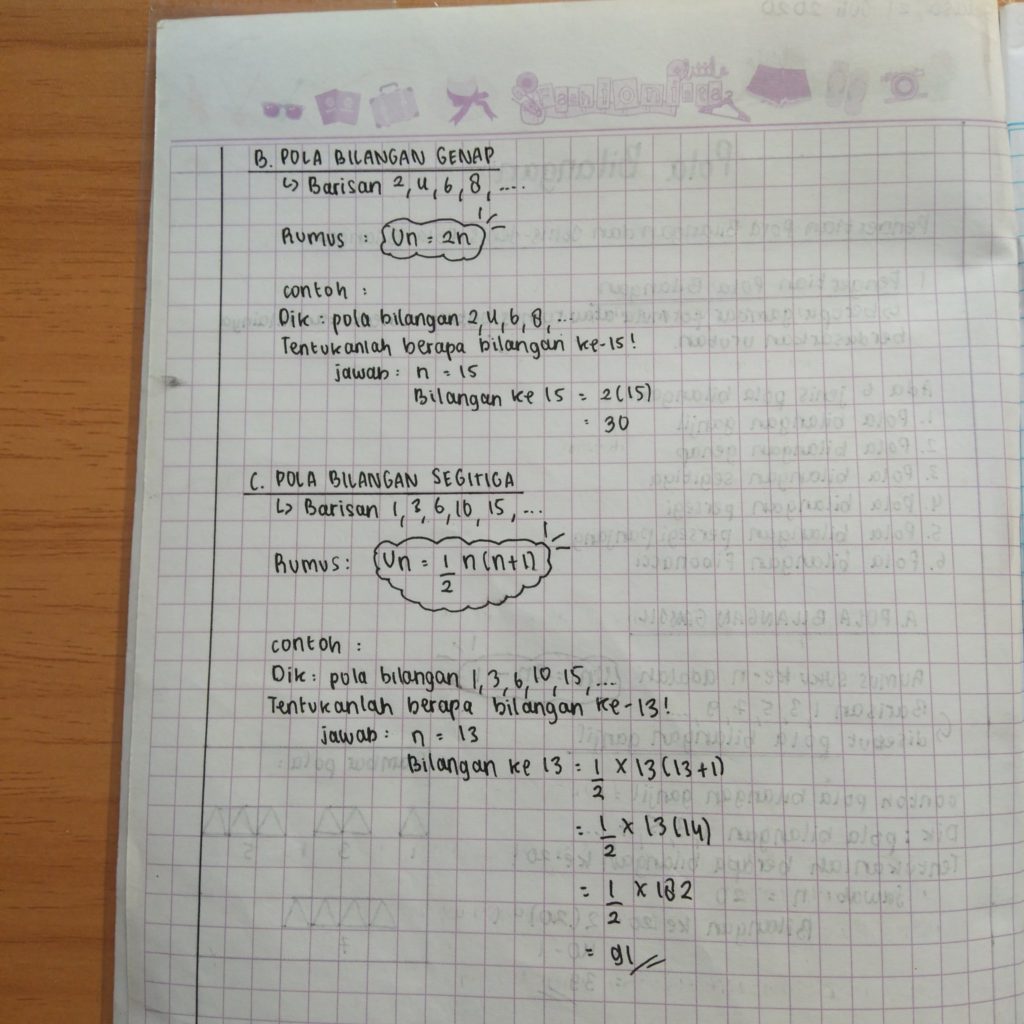 B. POLA BILANGAN GENAP
↳ Barisan 2, 4, 6, 8, ....
Rumus : Un = 2n
contoh :
Dik : pola bilangan 2, 4, 6, 8, ...
Tentukanlah berapa bilangan ke-15!
jawab : n = 15
Bilangan ke 15 = 2(15)
= 30
C. POLA BILANGAN SEGITIGA
↳ Barisan 1, 3, 6, 10, 15, ...
Rumus : Un = 1/2 n(n+1)
contoh :
Dik : pola bilangan 1, 3, 6, 10, 15, ...
Tentukanlah berapa bilangan ke-13!
jawab : n = 13
Bilangan ke 13 = 1/2 × 13(13+1)
= 1/2 × 13(14)
= 1/2 × 182
= 91